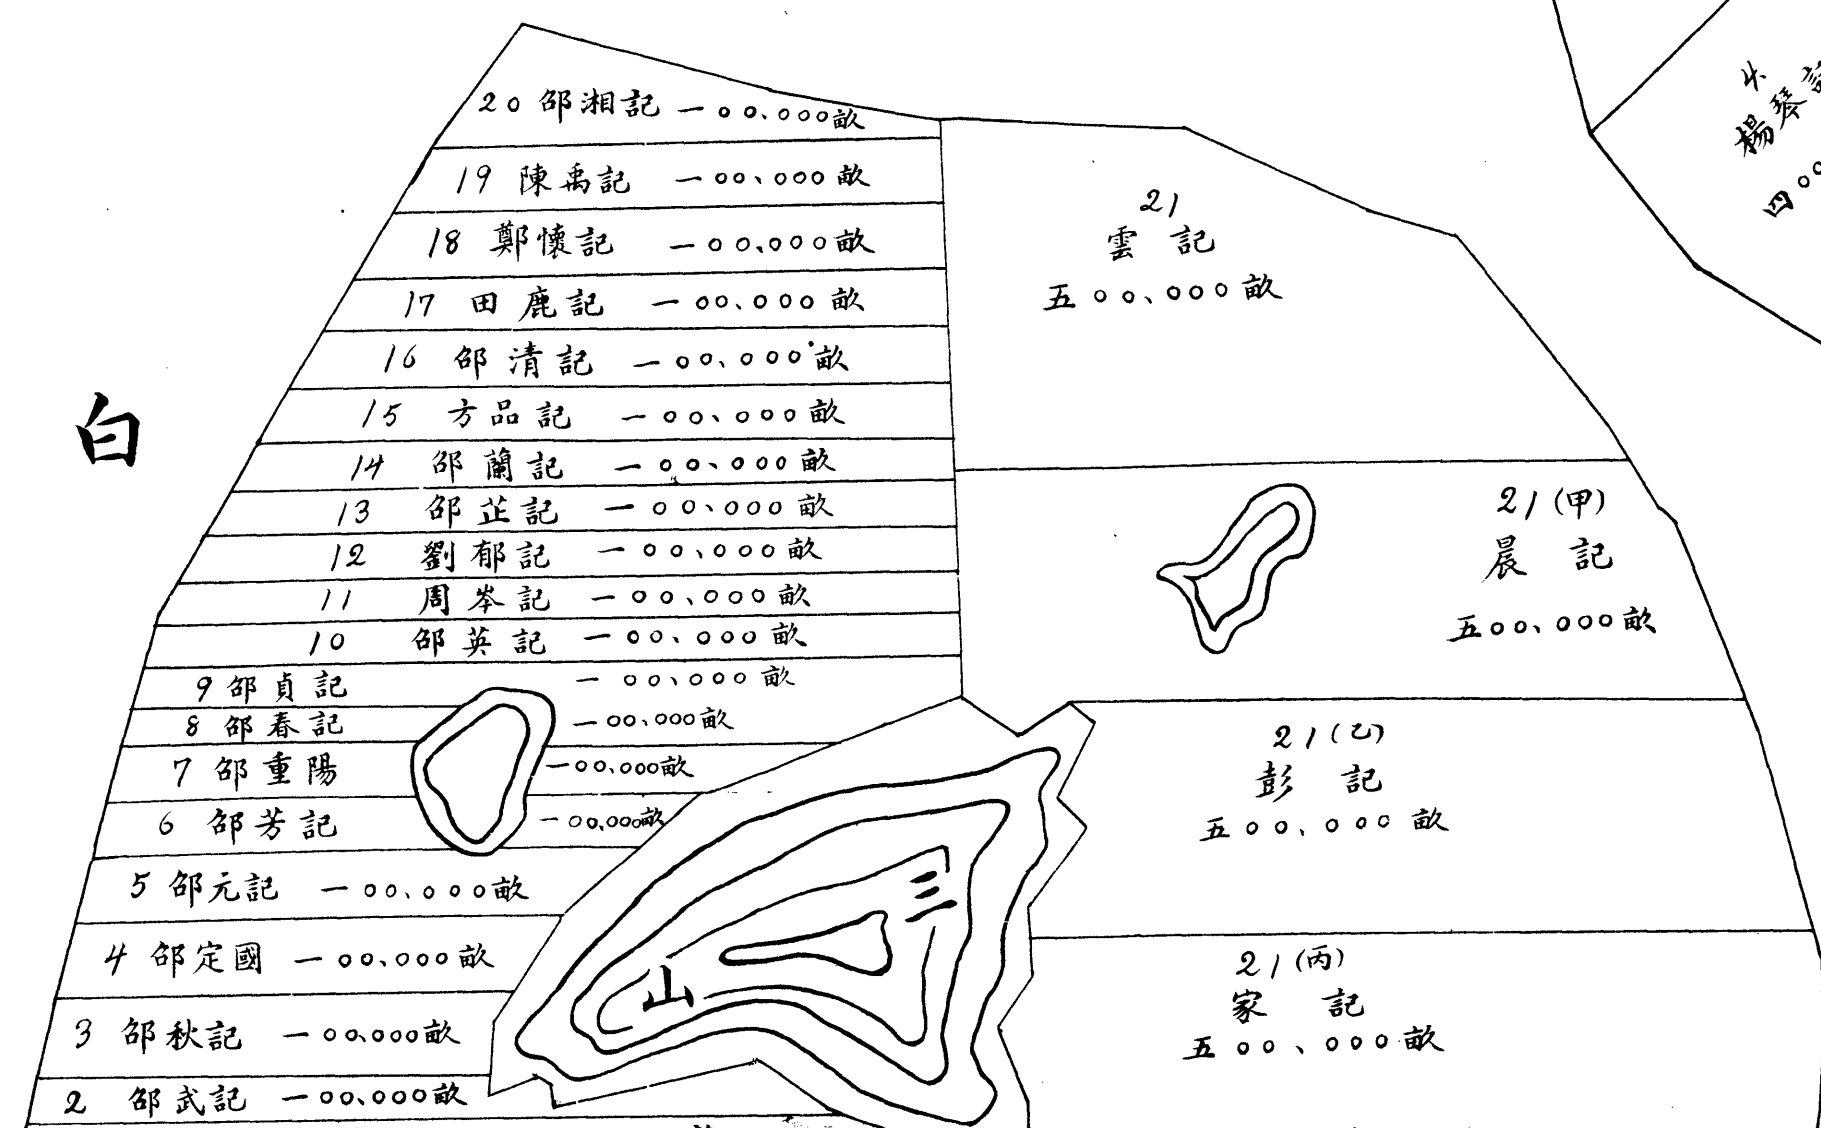 20 邵湘記 一〇〇、〇〇〇畝
19 陳禹記 一〇〇、〇〇〇畝
18 鄭懷記 一〇〇、〇〇〇畝
17 田鹿記 一〇〇、〇〇〇畝
16 邵清記 一〇〇、〇〇〇畝
15 方品記 一〇〇、〇〇〇畝
14 邵蘭記 一〇〇、〇〇〇畝
13 邵芷記 一〇〇、〇〇〇畝
12 劉郁記 一〇〇、〇〇〇畝
11 周岑記 一〇〇、〇〇〇畝
10 邵英記 一〇〇、〇〇〇畝
9 邵貞記 一〇〇、〇〇〇畝
8 邵春記 一〇〇、〇〇〇畝
7 邵重陽 一〇〇、〇〇〇畝
6 邵芳記 一〇〇、〇〇〇畝
5 邵元記 一〇〇、〇〇〇畝
4 邵定國 一〇〇、〇〇〇畝
3 邵秋記 一〇〇、〇〇〇畝
2 邵武記 一〇〇、〇〇〇畝
白
三
山
21
雲記
五〇〇、〇〇〇畝
21(甲)
晨記
五〇〇、〇〇〇畝
21(乙)
彭記
五〇〇、〇〇〇畝
21(丙)
家記
五〇〇、〇〇〇畝
楊琴記
四〇〇